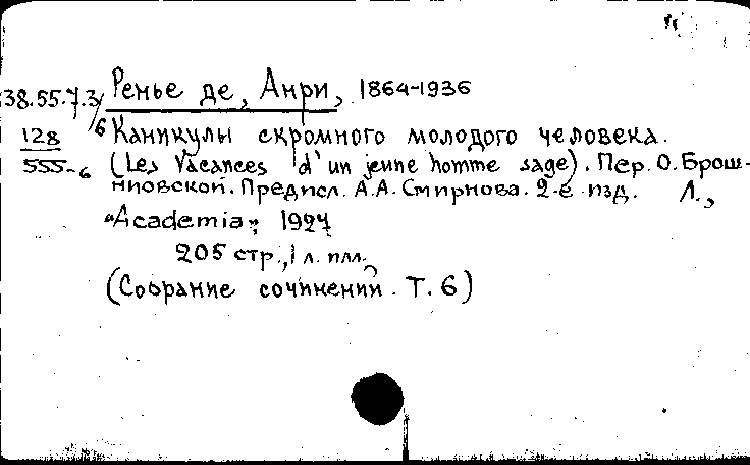 38.55.7.3/6 Ренье де, Анри, 1864-1936
128 Каникулы скромного молодого человека.
555-6 (Les Vacances d'un jeune homme sage). Пер. О. Брош-
ниовской. Предисл. А.А. Смирнова. 2-е изд. Л.,
"Academia", 1927
205 стр., 1 л. илл.
(Собрание сочинений. Т. 6)